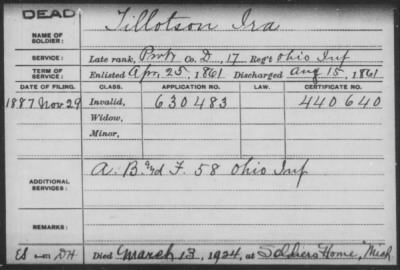 DEAD
NAME OF SOLDIER: Tillotson Ira
SERVICE: Late rank, Prvt Co. D, 17 Reg't Ohio Inf
TERM OF SERVICE: Enlisted Apr. 25, 1861 Discharged Aug 15, 1861
DATE OF FILING. CLASS. APPLICATION NO. CERTIFICATE NO.
1887 Nov 29 Invalid, 630483 440640
Widow,
Minor,
ADDITIONAL SERVICES: A. B. and F. 58 Ohio Inf
REMARKS:
Died March 13, 1924, at Soldiers Home, Mich